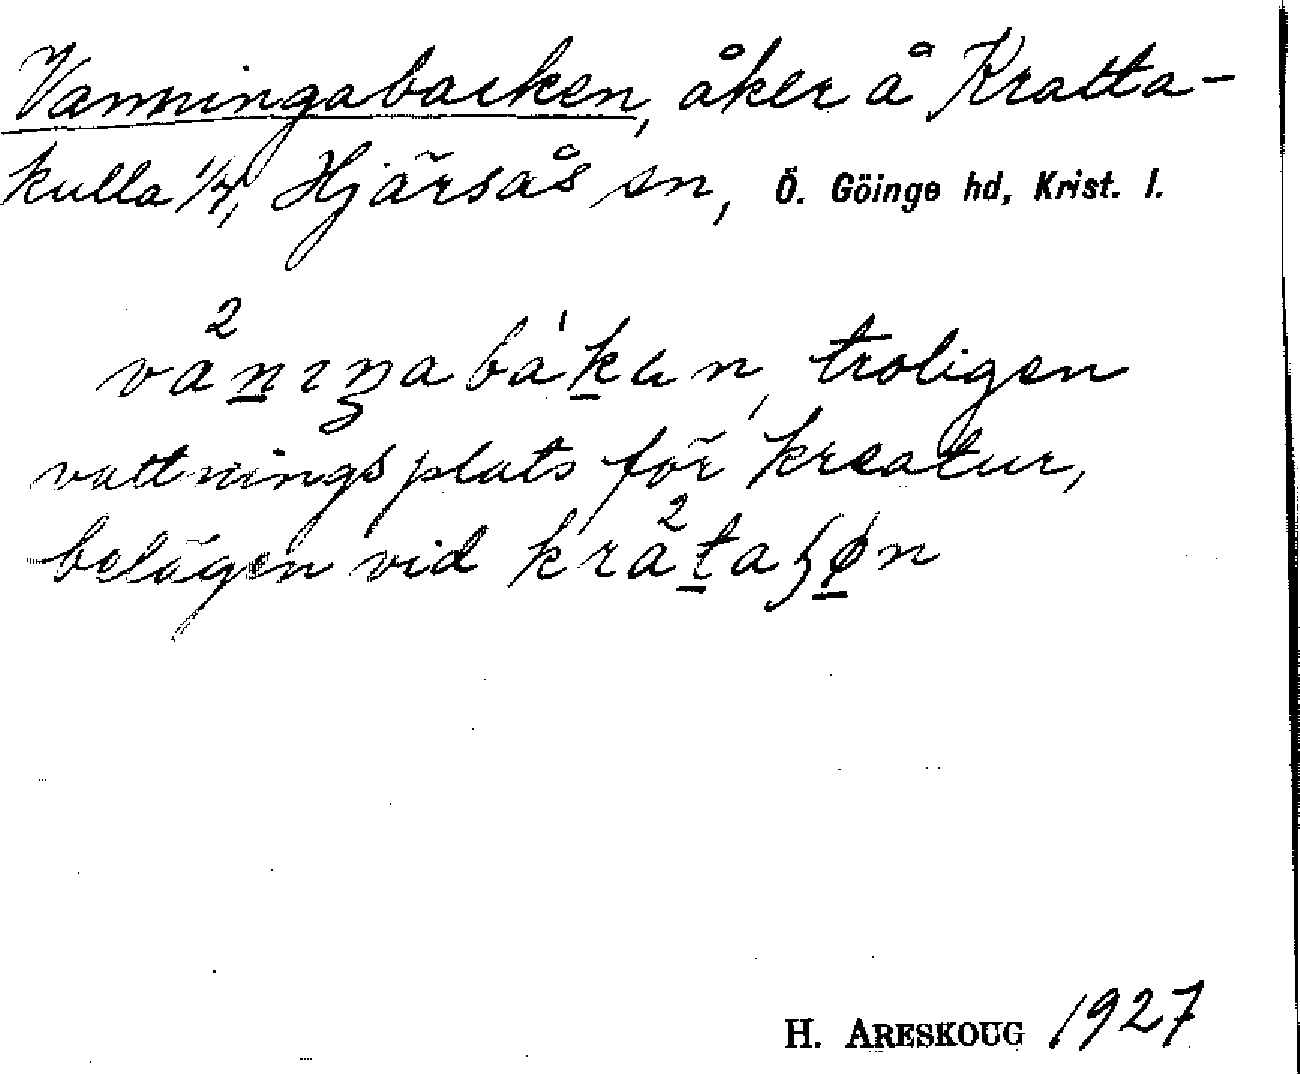 Vanningabacken, åker å Kratta-
kulla 1/4, Hjärsås sn, Ö. Göinge hd, Krist. l.
troligen
vattningsplats för kreatur,
belägen vid
H. ARESKOUG 1927